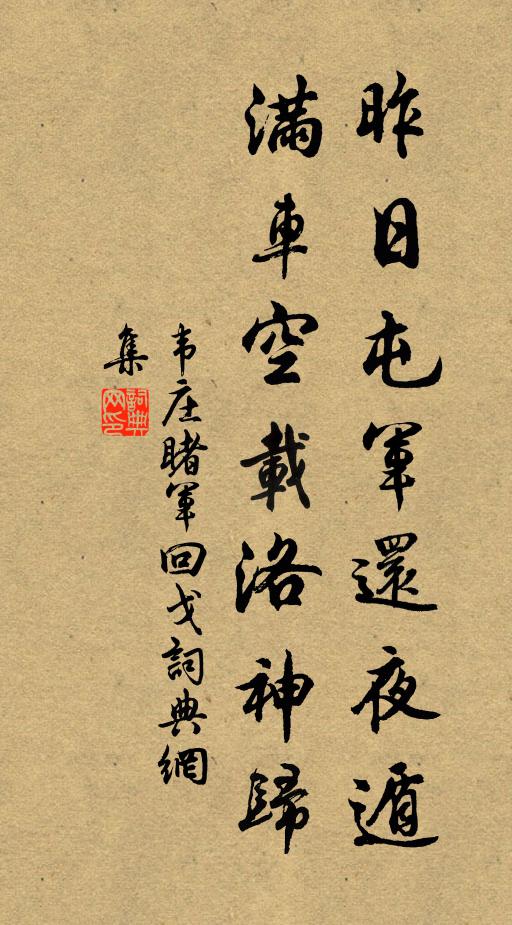 昨日屯軍還夜遁
滿車空載洛神歸
韦庄睹軍回戈詞典網
集
詞典
网印